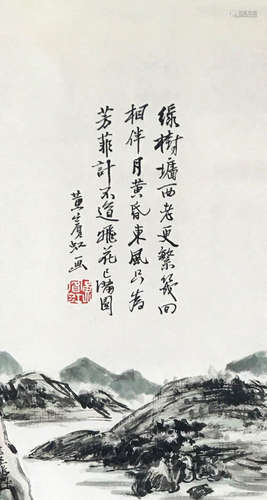 綠樹墻西老更繁幾回
相伴月黃昏東風只為
芳菲計不道飛花已滿園
黃賓虹画